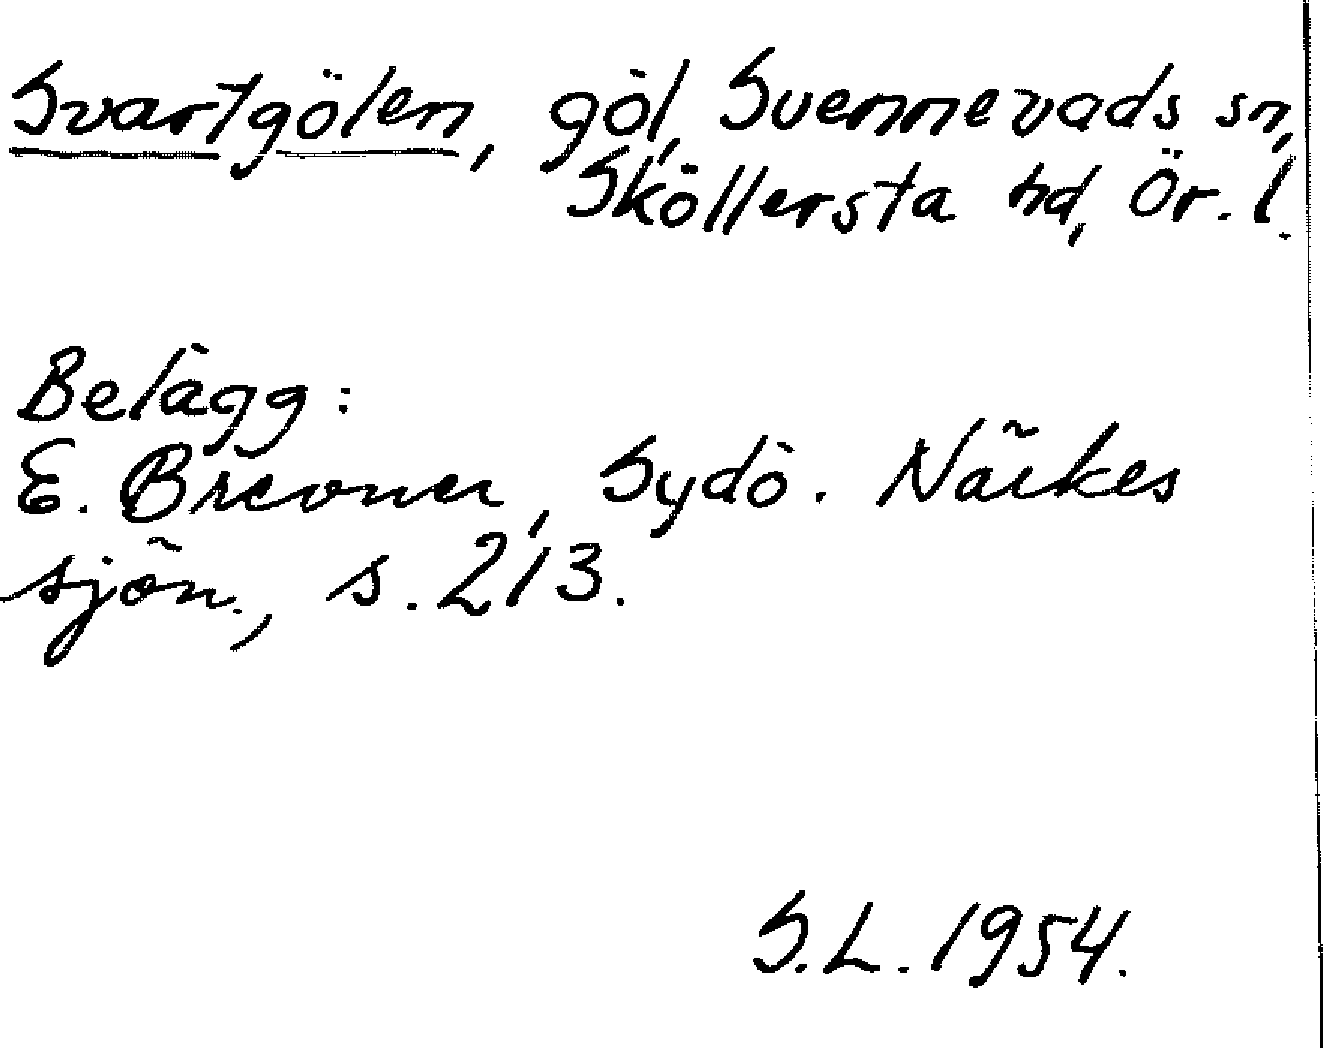 Svartgölen, göl, Svennevads sn,
Sköllersta hd, Ör. l.
Belägg:
E. Brevner, Sydö. Närkes
sjön., s. 213.
S.L. 1954.